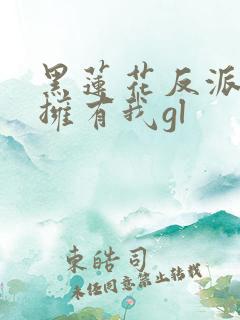 黑蓮花反派
擁有我gl
東皓司
未经同意禁止转载